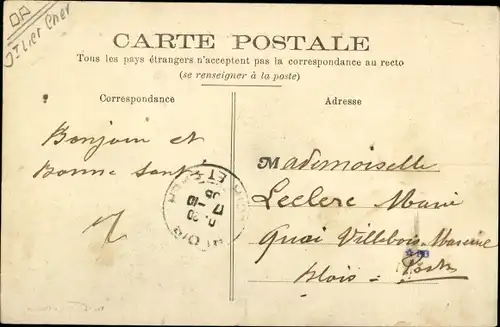 CARTE POSTALE
Tous les pays étrangers n'acceptent pas la correspondance au recto
(se renseigner à la poste)
Correspondance
Adresse
Bonjour et
Bonne Santé
Mademoiselle
Leclerc Marie
Quai Villebois Mareuil
Blois =